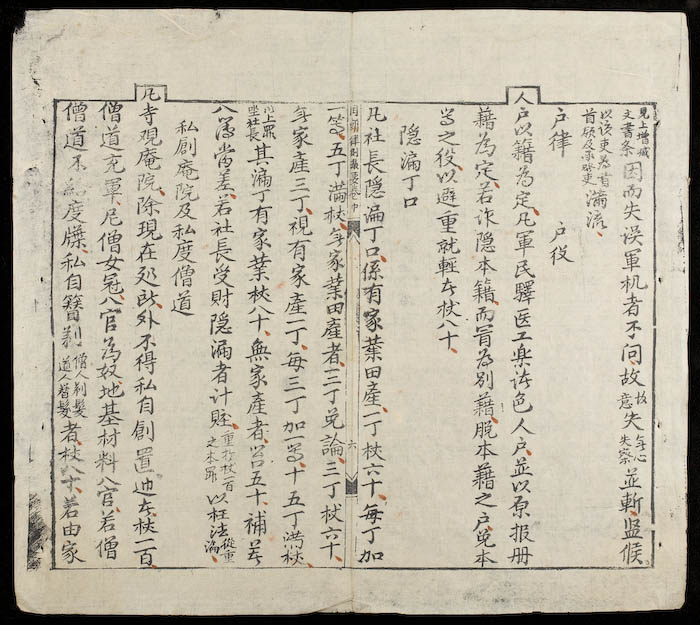 見上增減文書条因而失误軍机者不问故故意失無心失察並斬監候
以後吏為首首領及承吏满流
户律 户役
人户以籍為定凡軍民驛医工樂诸色人户並以原报册
藉為定若诈隐本籍而冒為別藉脱本藉之户免本
等之役以避重就輕者杖八十
隐漏丁口
凡社長隐漏丁口係有家葉田產一丁杖六十每丁加
律例撮要卷中 六
一等五丁满杖無家葉田產者二丁免論三丁杖六十
無家產三丁視有家產一丁每三丁加一等十五丁满杖
以上罪坐社長其漏丁有家葉杖八十無家產者笞五十補
當差若社長受財隐漏者计賍重於杖一百之本罪以枉法從重論
私創庵院及私度僧道
凡寺观庵院除現在処所外不得私自創置违者杖一百
僧道充軍尼僧女冠入官為奴地基材料入官若僧
僧道不給度牒私自簪剃僧人剃髮道人簪髮者杖八十若由家